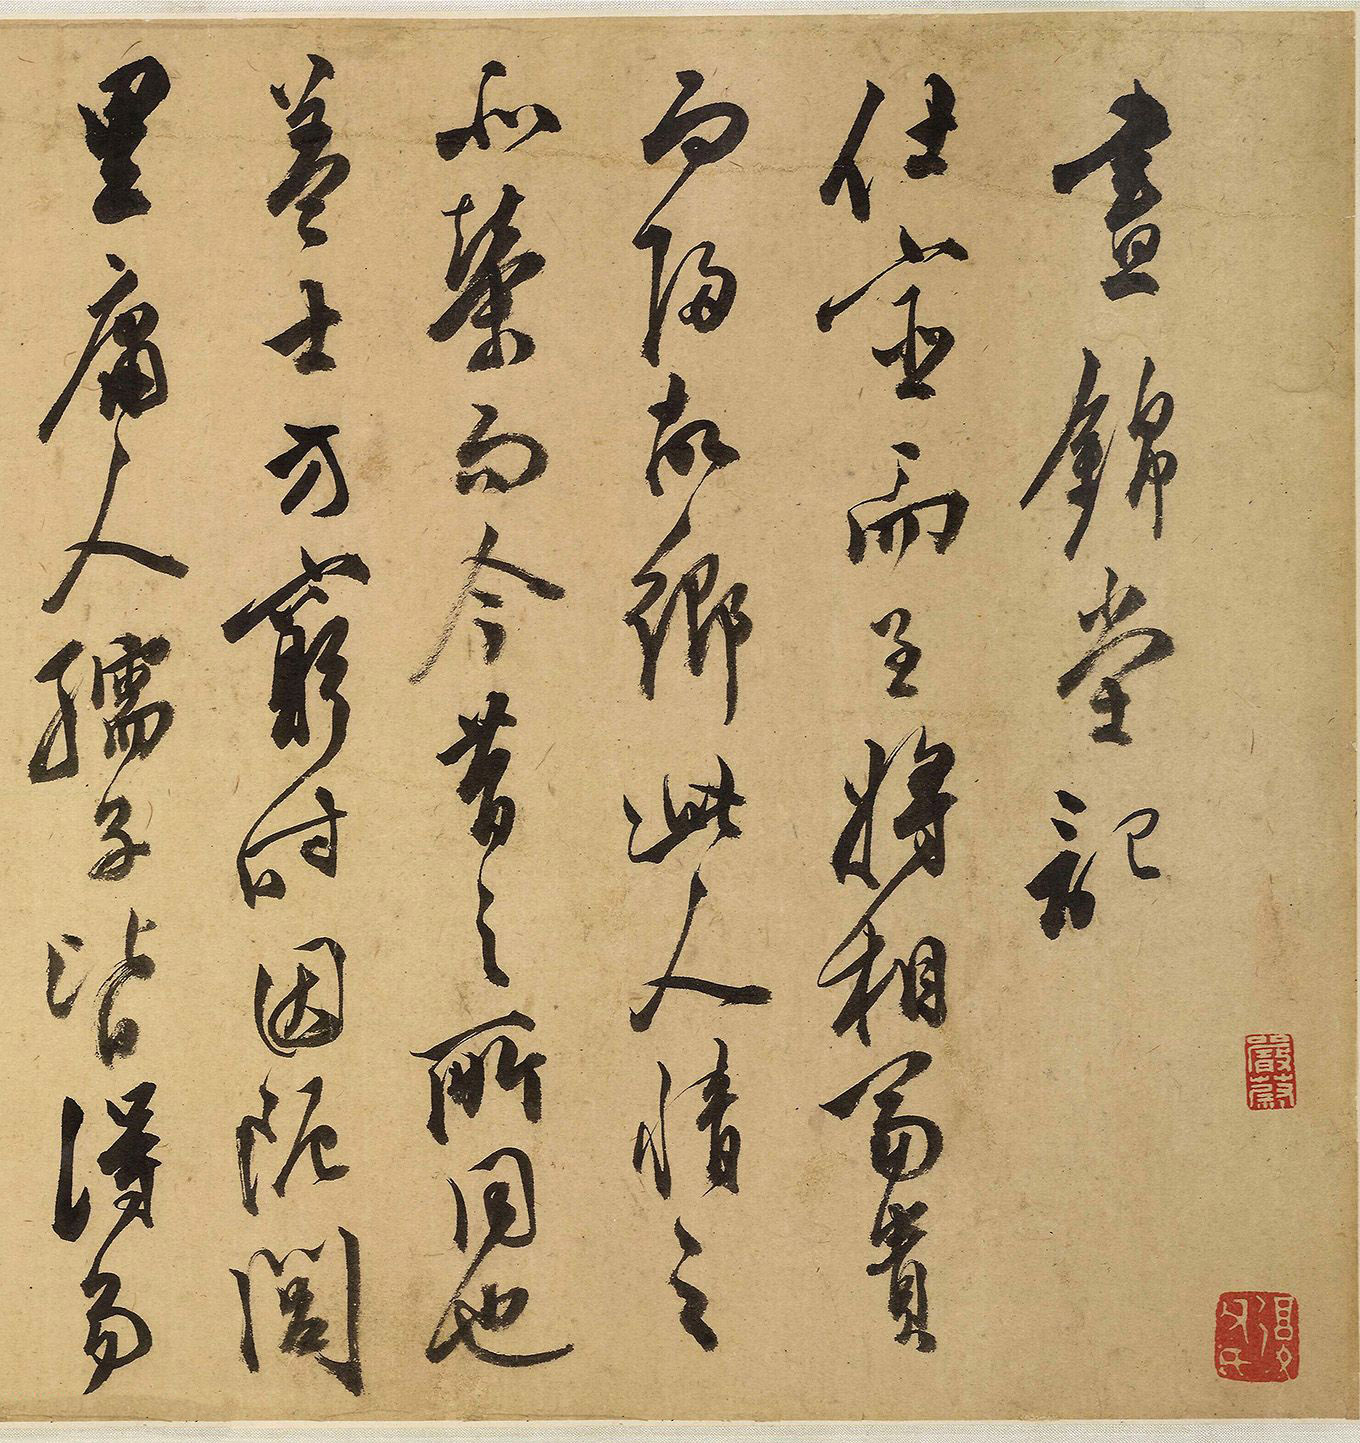 晝錦堂記
仕宦而至將相富貴
而歸故鄉此人情之
所榮而今昔之所同也
蓋士方窮時困阨閭
里庸人孺子皆得易
嚴蔚